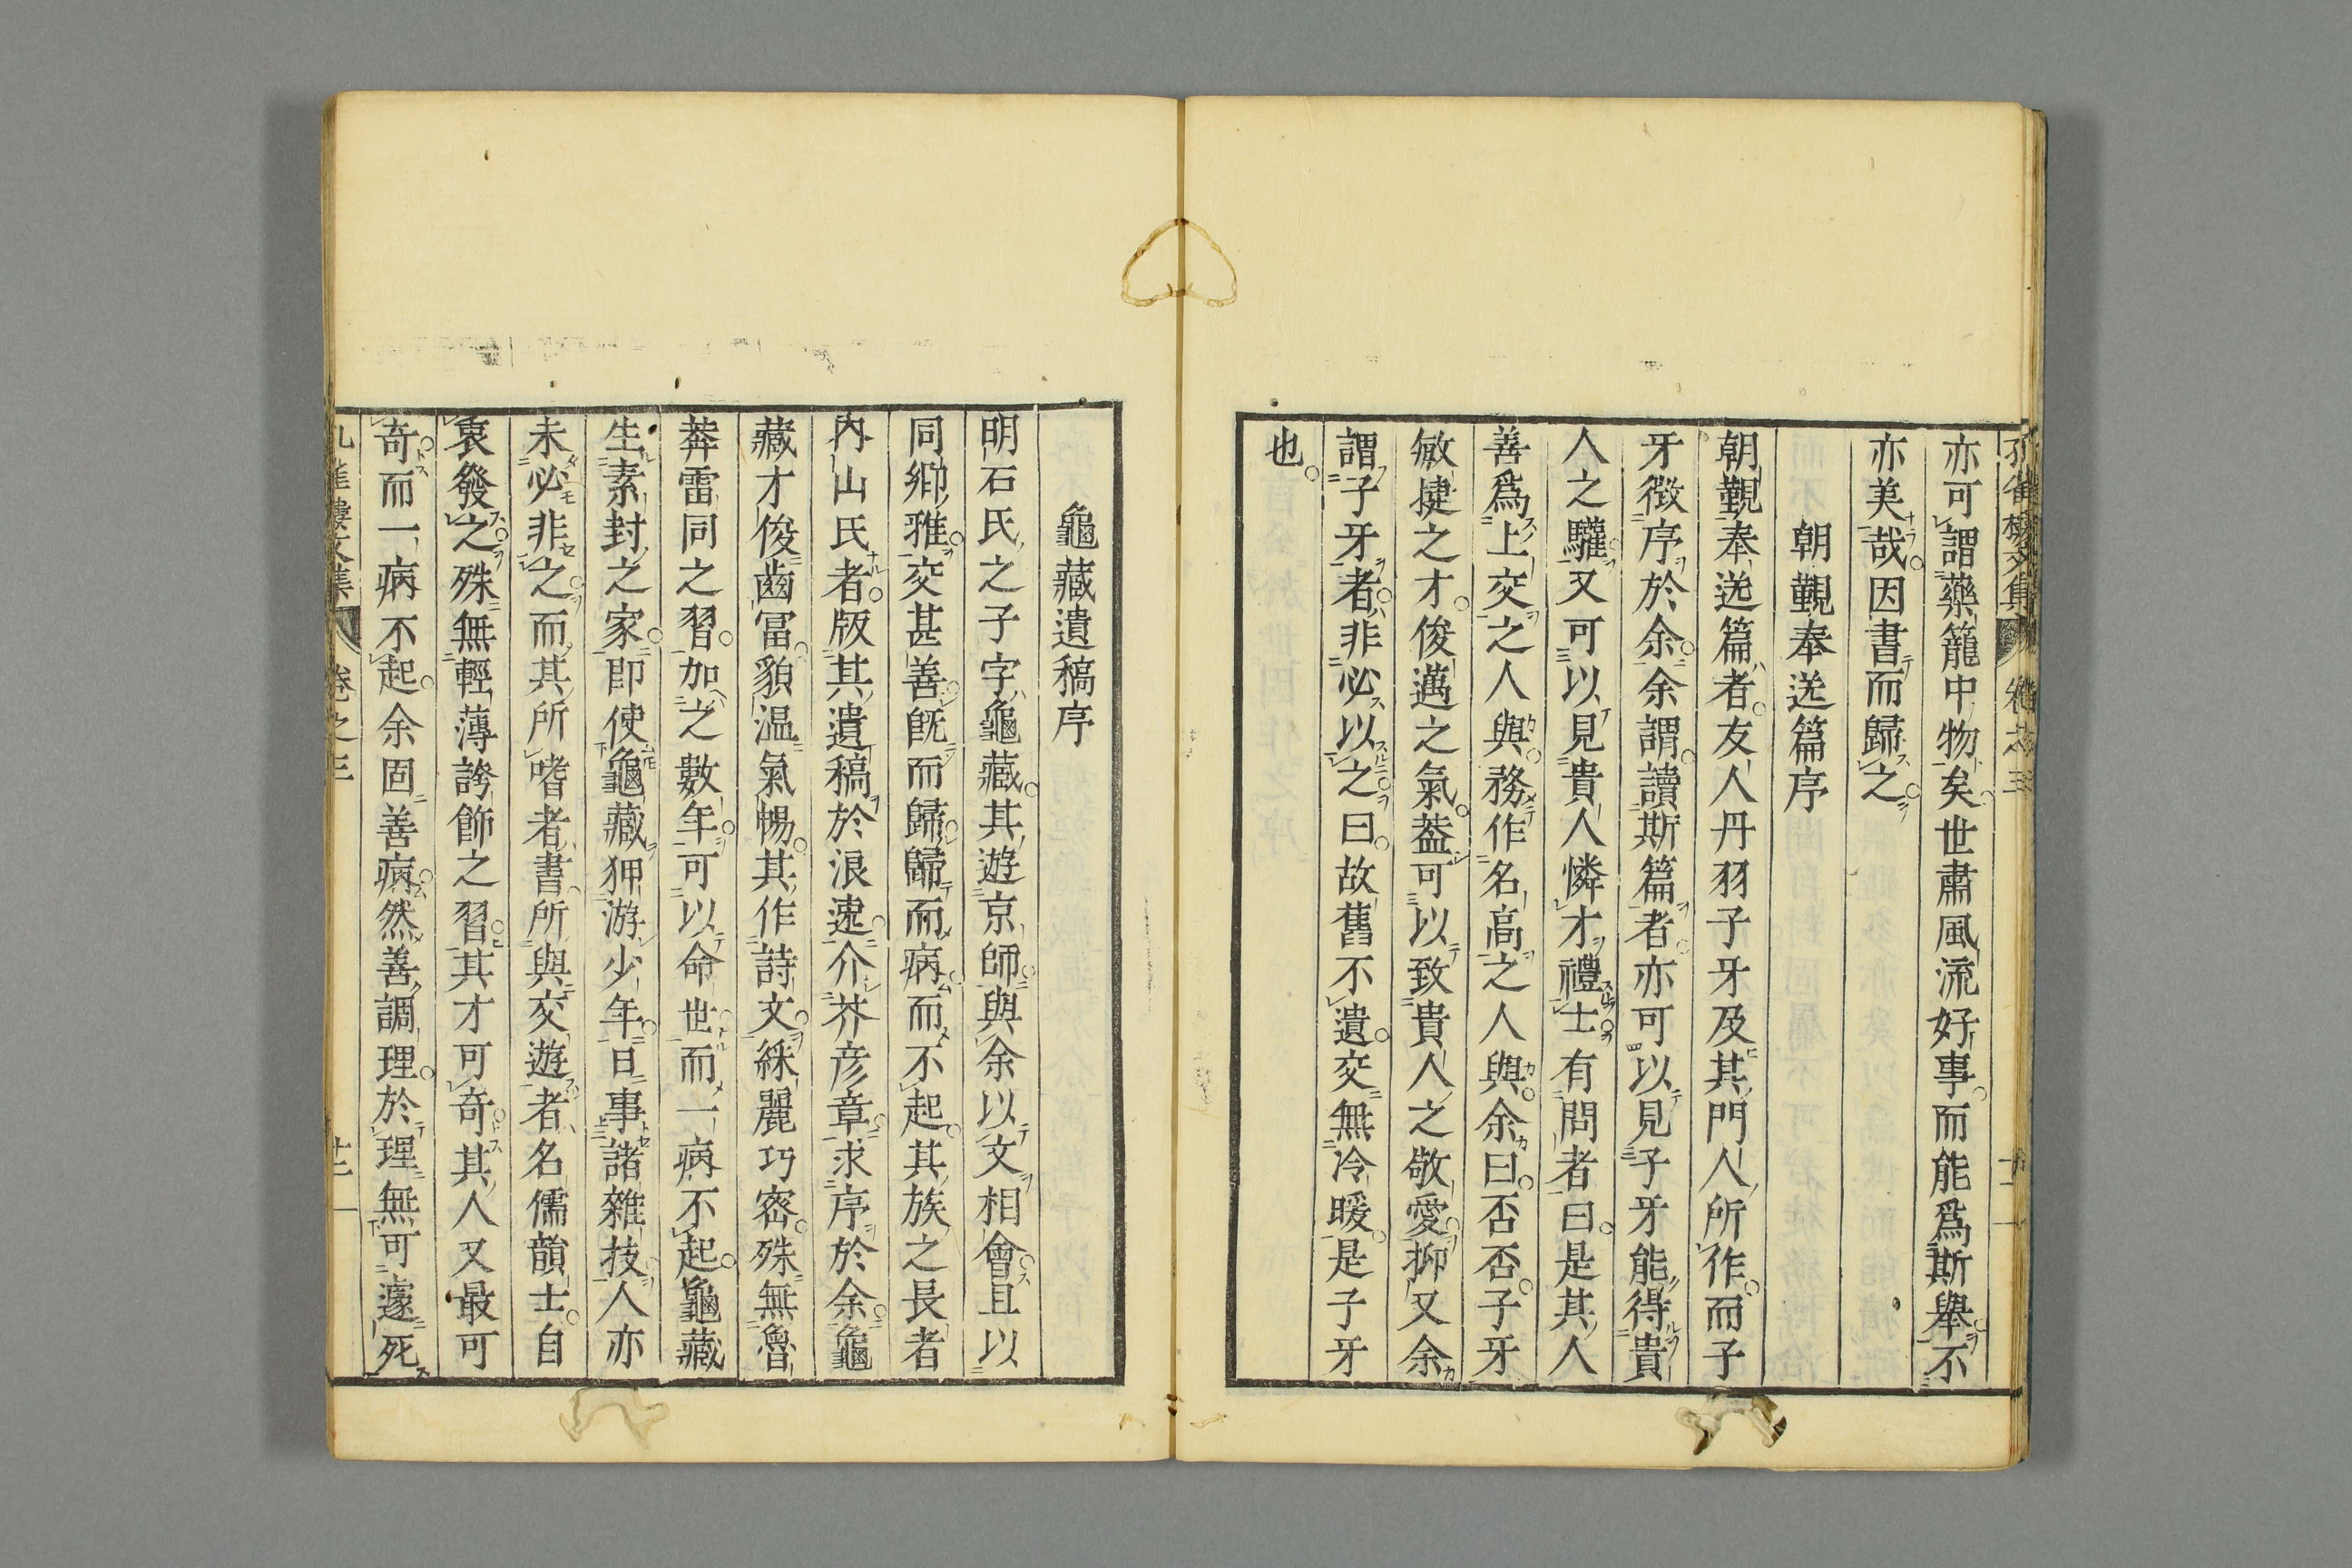 亦可謂藥籠中物矣世肅風流好事而能爲斯舉不
亦美哉因書而歸之
朝覲奉送篇序
朝覲奉送篇者友人丹羽子牙及其門人所作而子
牙徴序於余余謂讀斯篇者亦可以見子牙能得貴
人之驩又可以見貴人憐才禮士有問者曰是其人
善爲上交之人與務作名高之人與余曰否否子牙
敏捷之才俊邁之氣葢可以致貴人之敬愛抑又余
謂子牙者非必以之曰故舊不遺交無冷暖是子牙
也
龜藏遺稿序
明石氏之子字龜藏其遊京師與余以文相會且以
同鄉雅交甚善既而歸歸而病而不起其族之長者
內山氏者版其遺稿於浪速介芥彦章求序於余龜
藏才俊齒冨貌温氣暢其作詩文綵麗巧宻殊無魯
莽雷同之習加之數年可以命世而一病不起龜藏
生素封之家即使龜藏狎游少年日事諸雜技人亦
未必非之而其所嗜者書所與交遊者名儒韻士自
衷發之殊無輕薄誇飾之習其才可奇其人又最可
奇而一病不起余固善病然善調理於理無可遽死
孔雀樓文集 卷之三